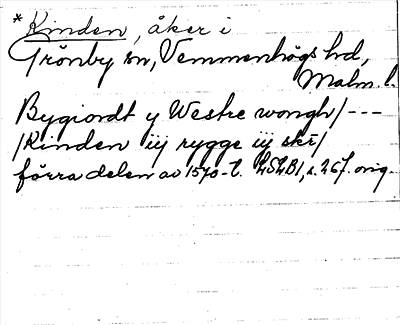 *Kinden, åker i
Grönby sn, Vemmenhögs hd,
Malm. l.
Bygiordt y Westre wongh/---
/Kinden iij rygge iij skr/
förra delen av 1570-t. LSLB1, s. 267. orig.